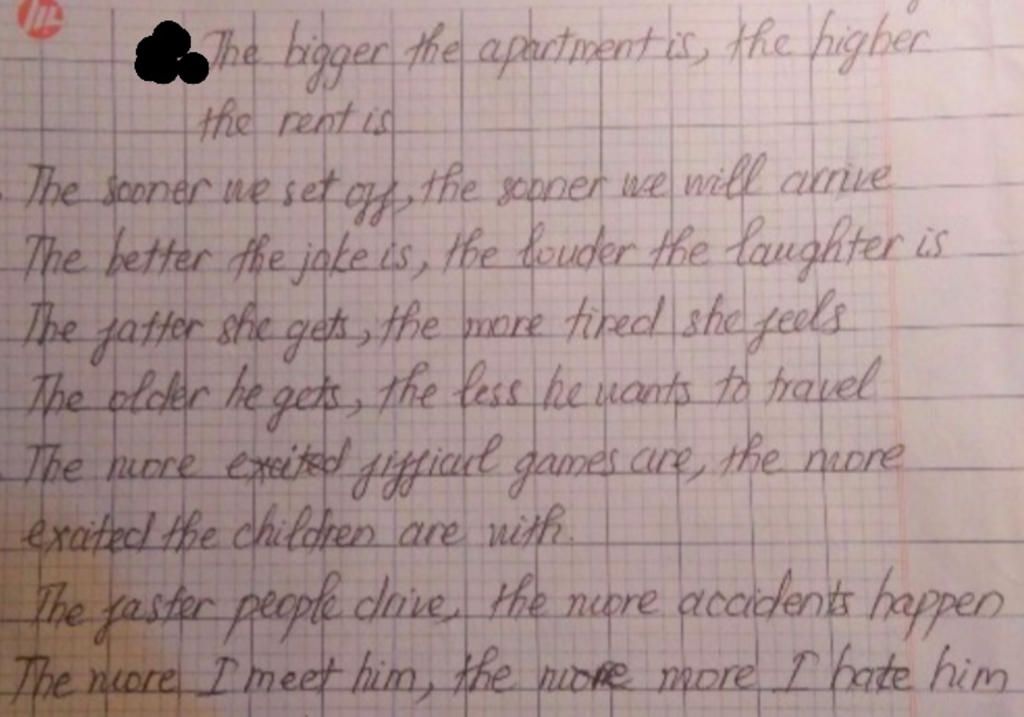 The bigger the apartment is, the higher
the rent is
The sooner we set off, the sooner we will arrive
The better the joke is, the louder the laughter is
The fatter she gets, the more tired she feels
The older he gets, the less he wants to travel
The more exited games are, the more
exated the children are with.
The faster people drive, the more accidents happen
The more I meet him, the more more I hate him